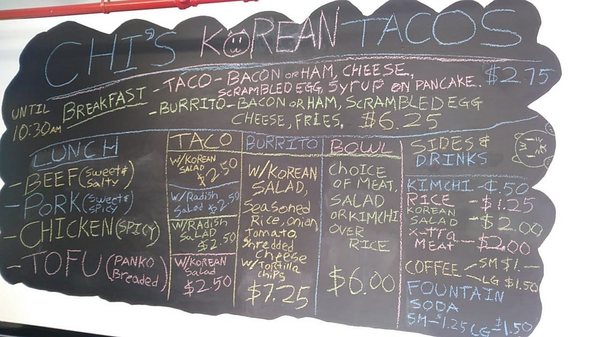 CHI'S KOREAN TACOS
UNTIL
10:30AM
BREAKFAST
-TACO-BACON OR HAM, CHEESE,
SCRAMBLED EGG, SYRUP ON PANCAKE.. $2.75
-BURRITO-BACON OR HAM, SCRAMBLED EGG
CHEESE, FRIES, $6.25
LUNCH
-BEEF (sweet & salty)
-PORK (sweet & spicy)
-CHICKEN (SPICY)
-TOFU (PANKO Breaded)
TACO
W/KOREAN
SALAD
$2.50
W/Radish
Salad $2.50
W/Radish
SALAD
$2.50
W/KOREAN
Salad
$2.50
BURRITO
W/KOREAN
SALAD,
Seasoned
Rice, Onion,
Tomato
Shredded
Cheese
W/Tortilla
chips
$7.25
BOWL
CHOICE
OF MEAT,
SALAD
OR KIMCHI
OVER
RICE
$6.00
SIDES &
DRINKS
KIMCHI -$.50
RICE -$1.25
KOREAN
SALAD -$2.00
X-tra
MEAT -$2.00
COFFEE SM $1.-
LG $1.50
FOUNTAIN
SODA
SM-$1.25 LG-$1.50